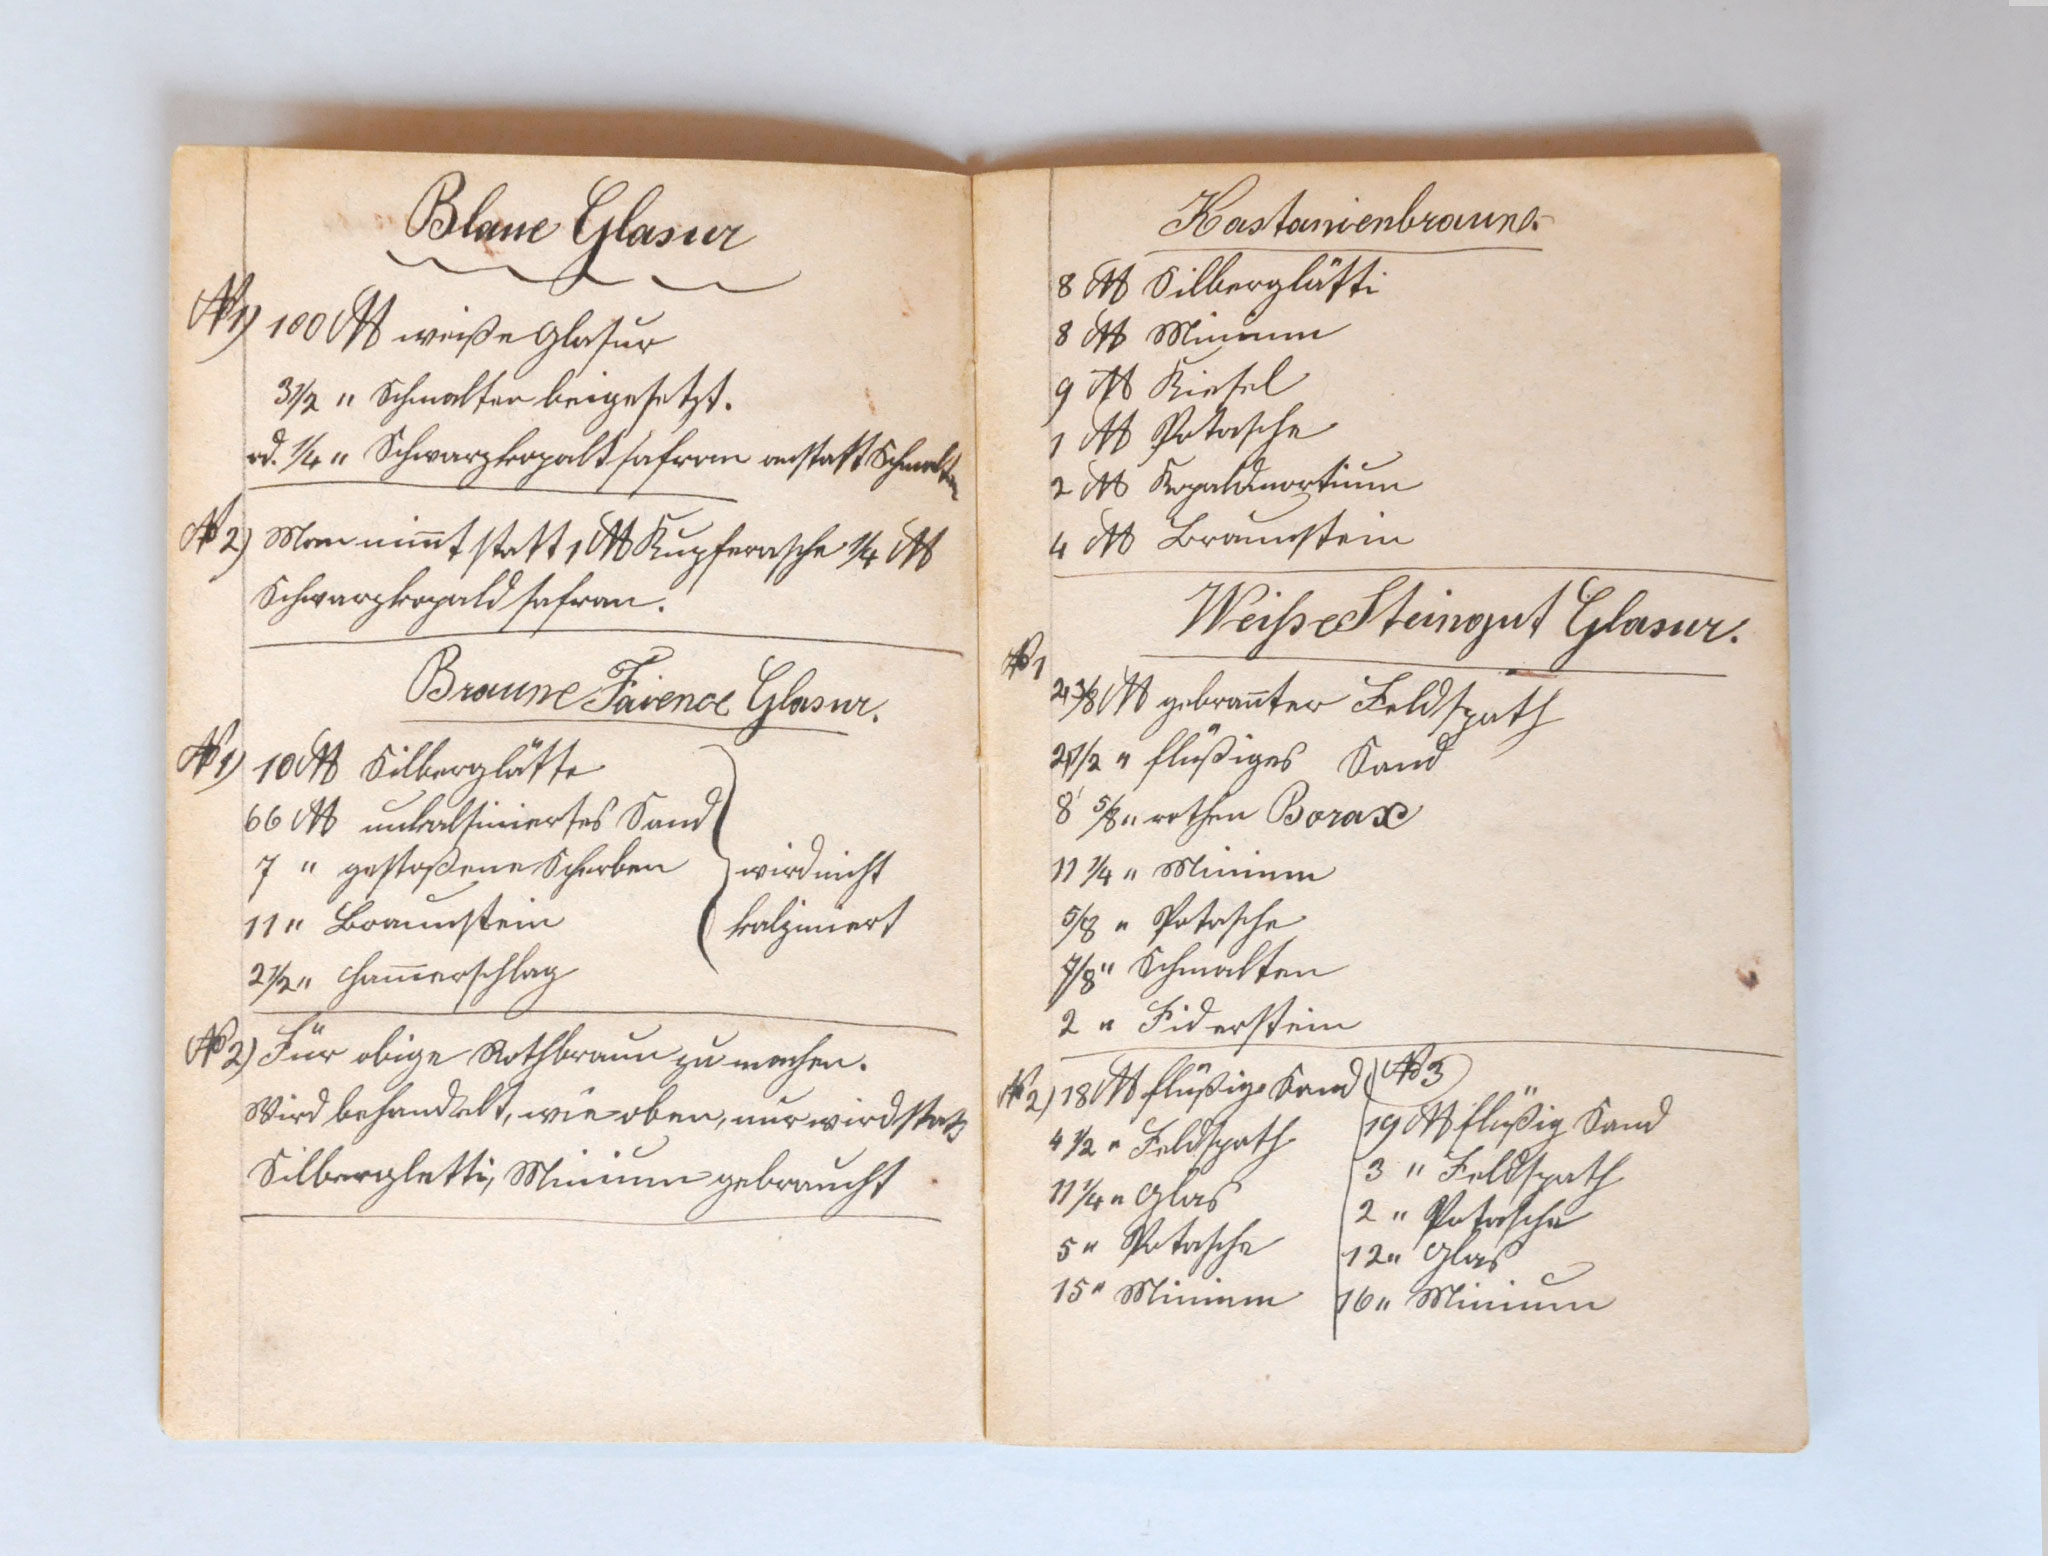 Blaue Glasur
№ 1) 100 ℔ weiße Glasur
3½ " Schmalten beigesetzt.
od. ¼ " Schwarzkopaltsafran anstatt Schmalten
№ 2) Man nim̄t statt 1 ℔ Kupferasche ¼ ℔
Schwarzkopaldsafran.
Braune Faience Glasur.
№ 1) 10 ℔ Silberglätte
66 ℔ unkalsiniertes Sand
7 " gestoßene Scherben
11 " Braunstein
2½ " Ham̄erschlag
wird nicht
kalziniert
№ 2) Für obige Rothbraun zu machen.
Wird behandelt, wie oben, nur wird statt
Silbergletti, Minium gebraucht
Kastanienbraune
8 ℔ Silberglätti
8 ℔ Minium
9 ℔ Kiesel
1 ℔ Potasche
2 ℔
4 ℔ Braunstein
Weisse Steingut Glasur.
№ 1
℔ gebran̄ter Feldspath
" flüßiges Sand
8 ⅝ " rothen Borax
11 ¼ " Minium
⅝ " Potasche
⅞ " Schmalten
2 " Fiderstein
№ 2) 18 ℔ flüßige Sand
4 ½ " Feldspath
11 ¼ " Glas
5 " Potasche
15 " Minium
№ 3
19 ℔ flüßig Sand
3 " Feldspath
2 " Potasche
12 " Glas
16 " Minium